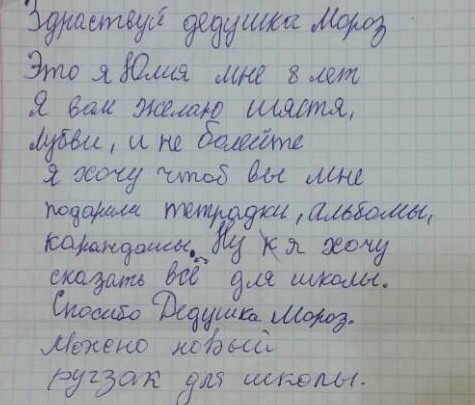 Здраствуй дедушка Мороз
Это я Юлия мне 8 лет
Я вам желаю щястя,
лубви, и не болейте
я хочу чтоб вы мне
подарили тетрадки, альбомы,
карандашы. Ну я хочу
сказать всё для школы.
Спосибо Дедушка Мороз.
Можно новый
ругзак для школы.